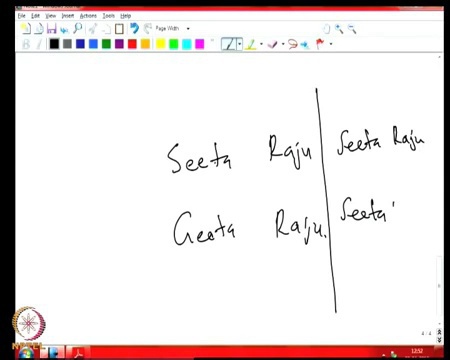 File Edit View Insert Actions Tools Help
Page Width
Seeta Raju Seeta Raju
Geeta Raju. Seeta'
NPTEL
12:52